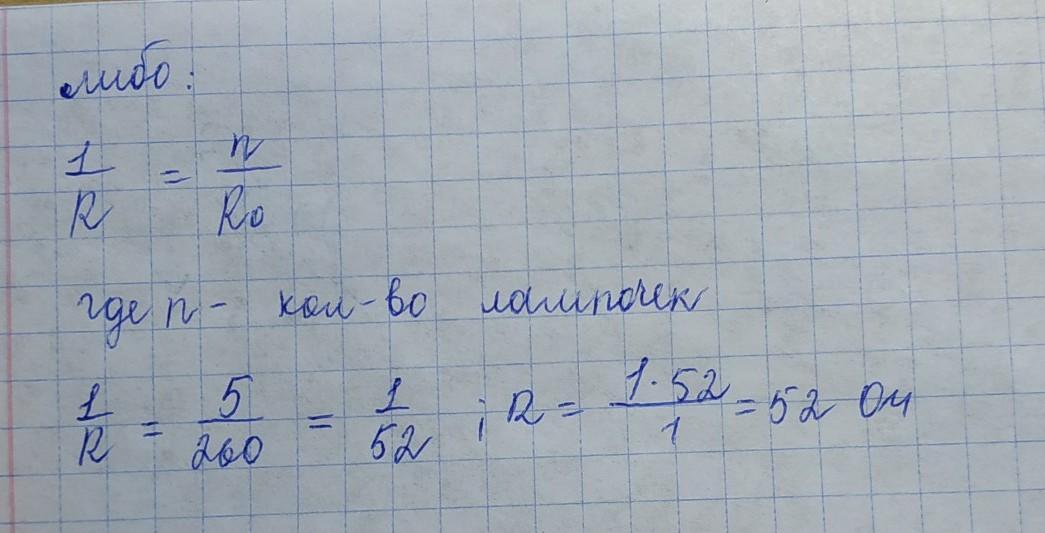 либо:
1/R = n/R₀
где n - кол-во лампочек
1/R = 5/260 = 1/52 ; R = 1·52/1 = 52 Ом